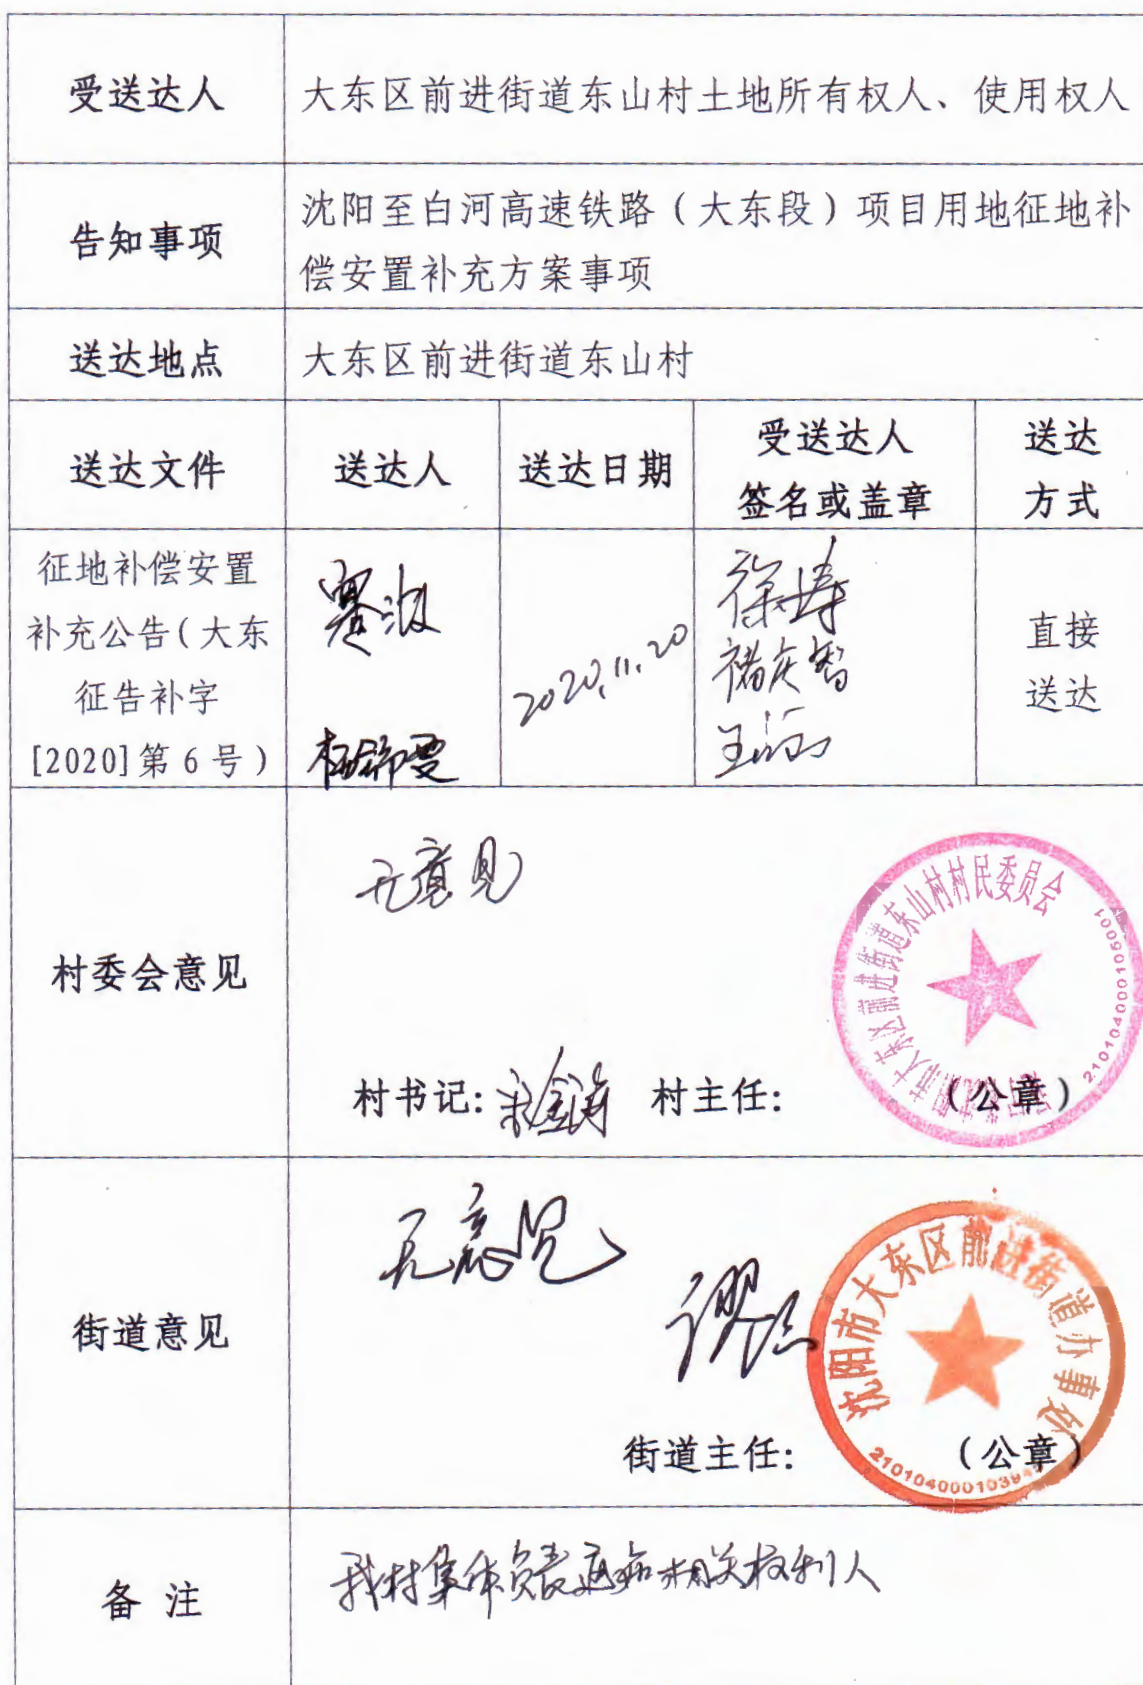 受送达人
大东区前进街道东山村土地所有权人、使用权人
告知事项
沈阳至白河高速铁路（大东段）项目用地征地补
偿安置补充方案事项
送达地点
大东区前进街道东山村
送达文件
送达人
送达日期
受送达人
签名或盖章
送达
方式
征地补偿安置
补充公告（大东
征告补字
[2020]第6号）
2020.11.20
徐涛
褚庆智
直接
送达
村委会意见
无意见
村书记:
村主任:
（公章）
沈阳市大东区前进街道东山村村民委员会
2101040000105001
街道意见
无意见
街道主任:
（公章）
沈阳市大东区前进街道办事处
备 注
我村集体负责通知相关权利人